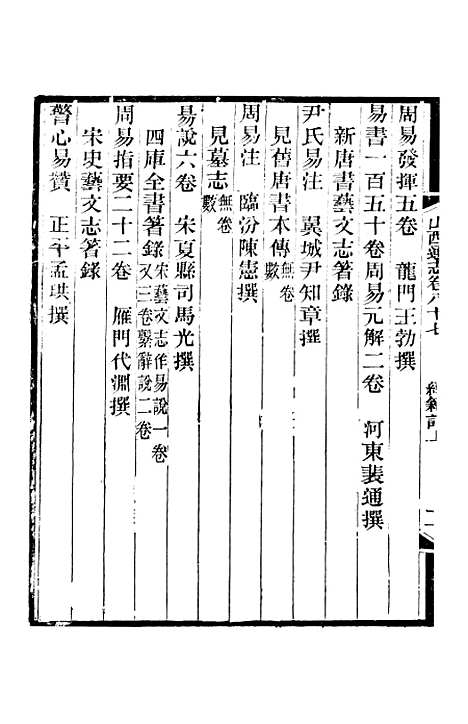 山西通志卷八十七　經籍記上　二
周易發揮五卷　龍門王勃撰
易書一百五十卷周易元解二卷　河東裴通撰
新唐書藝文志著錄
尹氏易注　翼城尹知章撰
見舊唐書本傳無卷數
周易注　臨汾陳憲撰
見墓志無卷數
易說六卷　宋夏縣司馬光撰
四庫全書著錄宋藝文志作易說一卷又三卷繫辭說二卷
周易指要二十二卷　雁門代淵撰
宋史藝文志著錄
警心易贊　孟珙撰